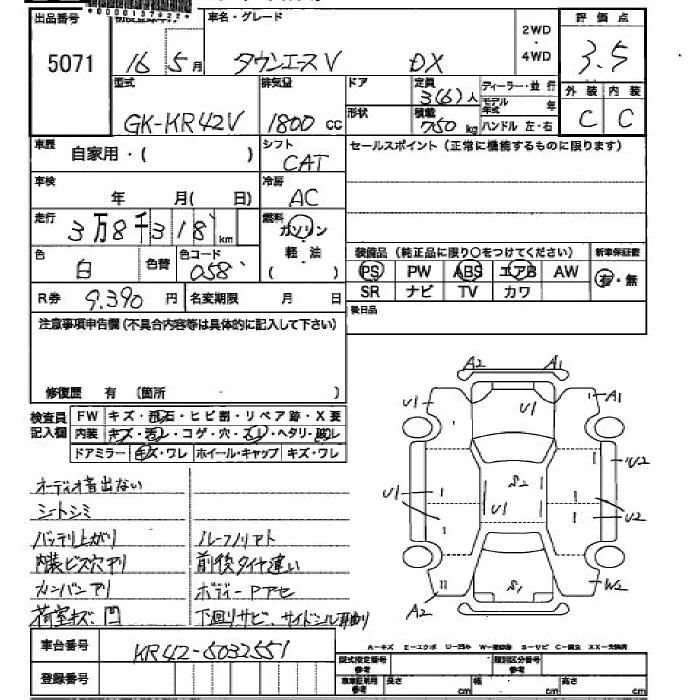 出品番号 5071
16 5月
車名・グレード タウンエースV DX
2WD ・ 4WD
評価点 3.5
型式 GK-KR42V
排気量 1800 cc
ドア
形状
定員 3(6)人
積載 750 kg
ディーラー・並 行
モデル年式 年
ハンドル 左・右
外装 C 内装 C
車歴 自家用・( )
シフト CAT
セールスポイント(正常に機能するものに限ります)
車検 年 月( 日)
冷房 AC
走行 3万8千318 km
燃料 ガソリン 軽油 ( )
色 白 色替 色コード 058
装備品(純正品に限り○をつけてください) 新車保証書
PS PW ABS エアB AW 有・無
SR ナビ TV カワ
R券 9,390 円 名変期限 月 日
後日品
注意事項申告欄(不具合内容等は具体的に記入して下さい)
修復歴 有 (箇所 )
検査員記入欄
FW キズ・飛石・ヒビ割・リペア跡・X要
内装 キズ・汚レ・コゲ・穴・スレ・ヘタリ・破レ
ドアミラー キズ・ワレ ホイール・キャップ キズ・ワレ
オーディオ音出ない
シートシミ
バッテリ上がり ルーフリアト
内装ビス穴アリ 前後タイヤ違い
カンバンアリ ボディーPアセ
荷室キズ、凹 下回りサビ、サイドシル
A2 A1
U1 U1 A1
W2
S2
U1 U1 U2
A2 S1 W2
車台番号 KR42-5032551
A-キズ E-エクボ U-凹み W-補修跡 S-サビ C-腐食 XX-交換済
登録番号
型式指定番号 類別区分番号
車庫証明用参考 長さ cm 幅 cm 高さ cm